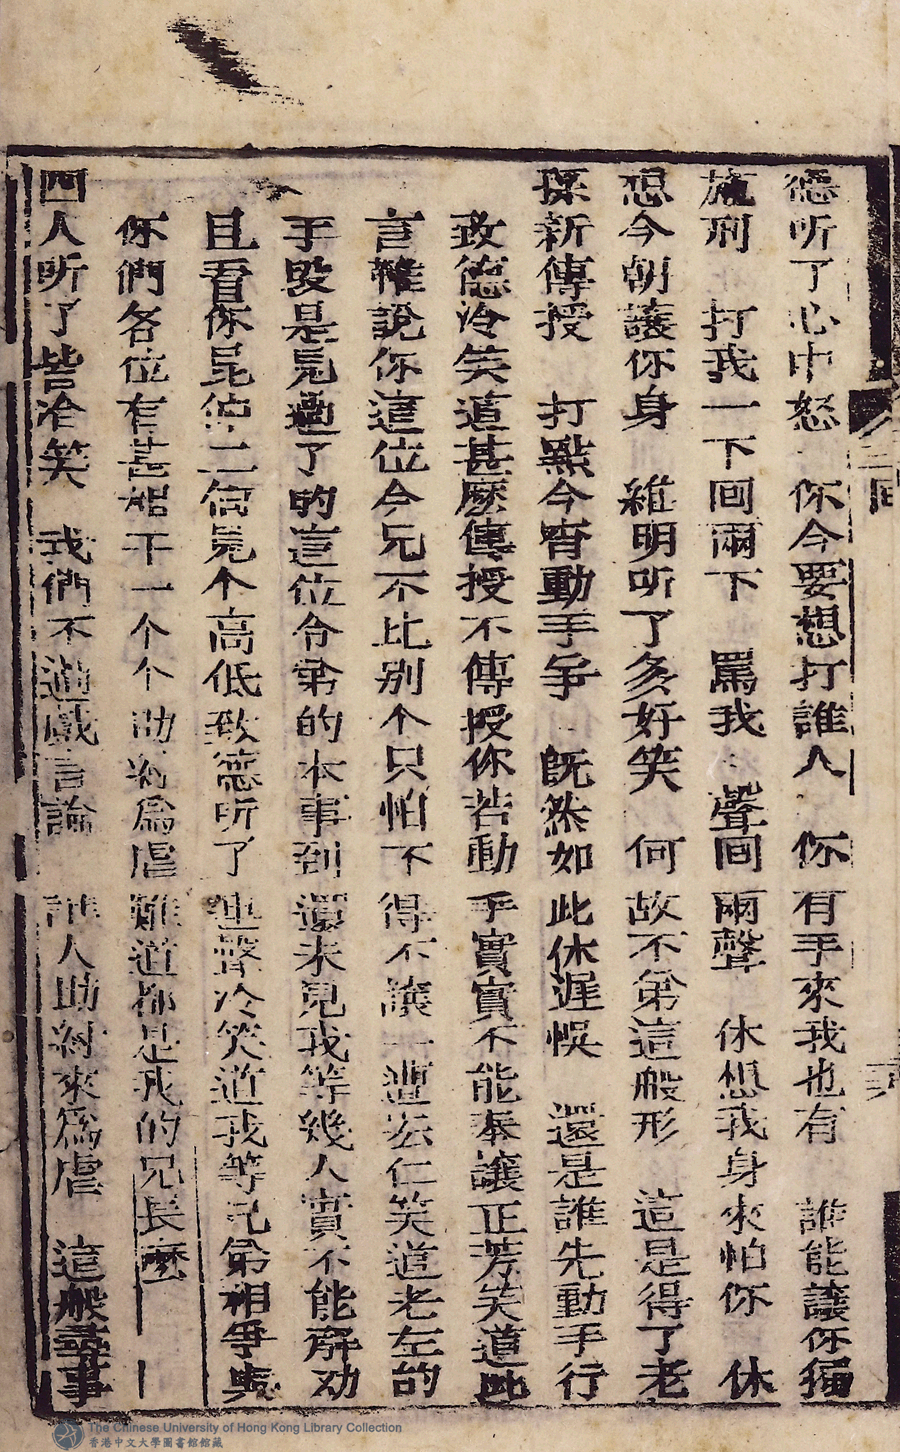 德听了心中怒 你今要想打誰人 你有手來我也有 誰能讓你獨
施刑 打我一下回兩下 罵我一聲回兩聲 休想我身來怕你 休
想今朝讓你身 維明听了多好笑 何故不弟這般形 這是得了老
孫新傳授 打點今宵動手爭 既然如此休遲悞 還是誰先動手行
致德冷笑道甚麽傳授不傳授你若動手實實不能奉讓正芳笑道此
言雖說你這位令兄不比別个只怕下得不讓一進宏仁笑道老左的
手毀是見過了的這位令弟的本事到還未見我等幾人實不能解劝
且看你昆仲二位見个高低致德听了連聲冷笑道我等兄弟相爭與
你們各位有甚相干一个个助紂爲虐難道都是我的兄長麽
四人听了皆冷笑 我們不過戲言論 誰人助紂來爲虐 這般尋事
三回
The Chinese University of Hong Kong Library Collection
香港中文大學圖書館館藏